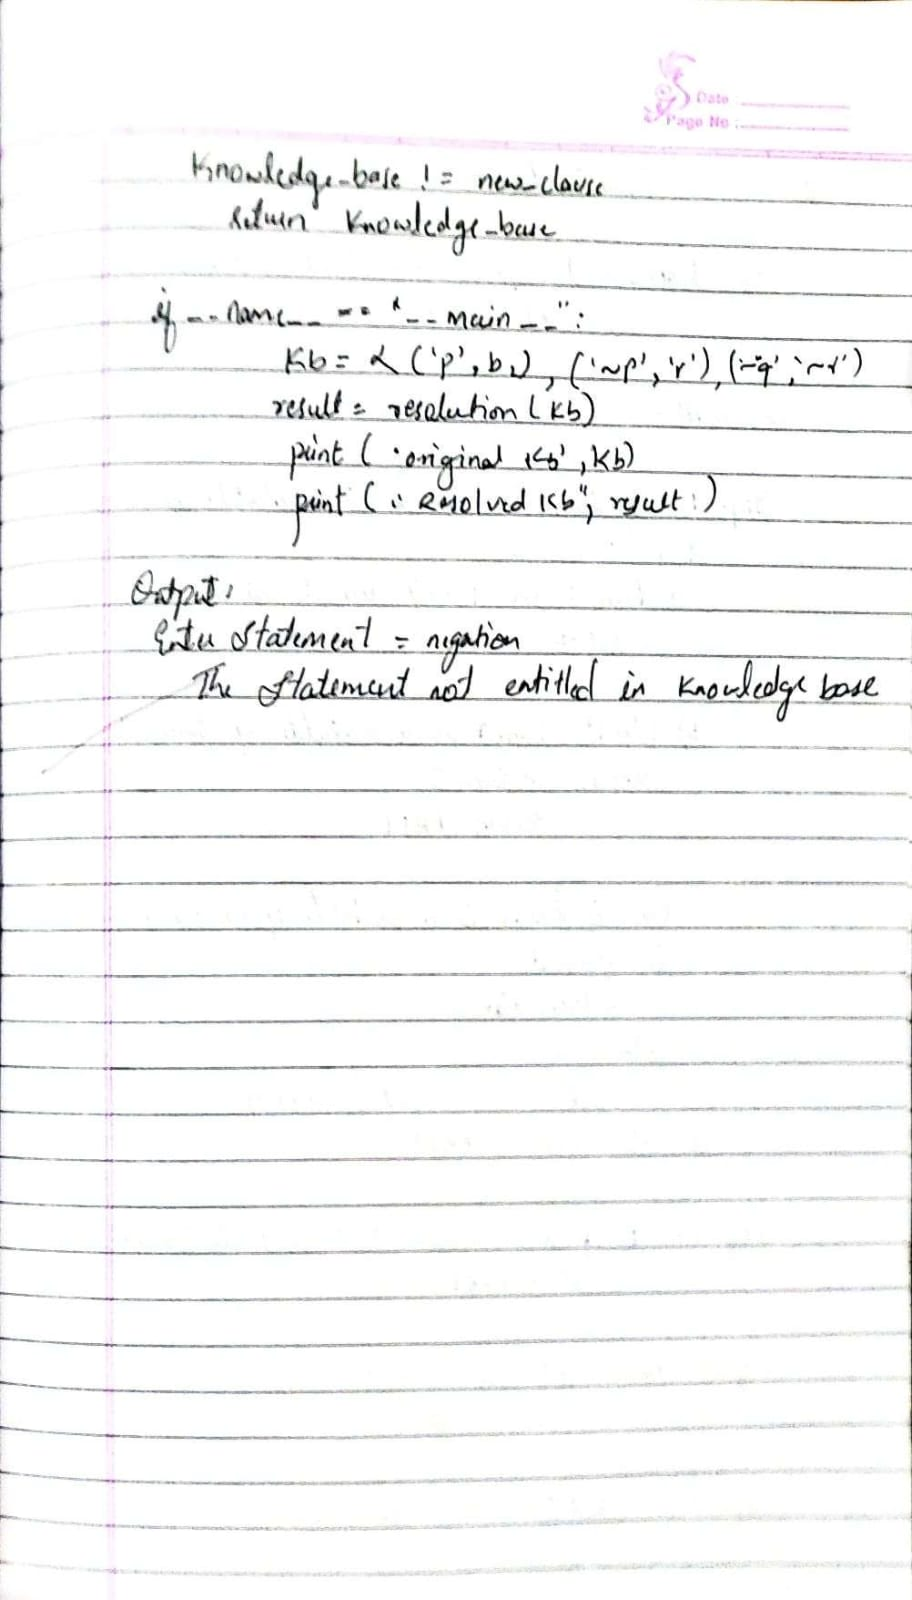 Date
Page No :
Knowledge-base != new-clause
return Knowledge-base
if __name__ == "__main__":
Kb = {('p', b,), ('~p', 'r'), ('~q', '~r')
result = resolution (Kb)
print ( 'original Kb', Kb)
print ( : Resolved Kb", result : )
Output:
Enter Statement = negation
The Statement not entitled in Knowledge base